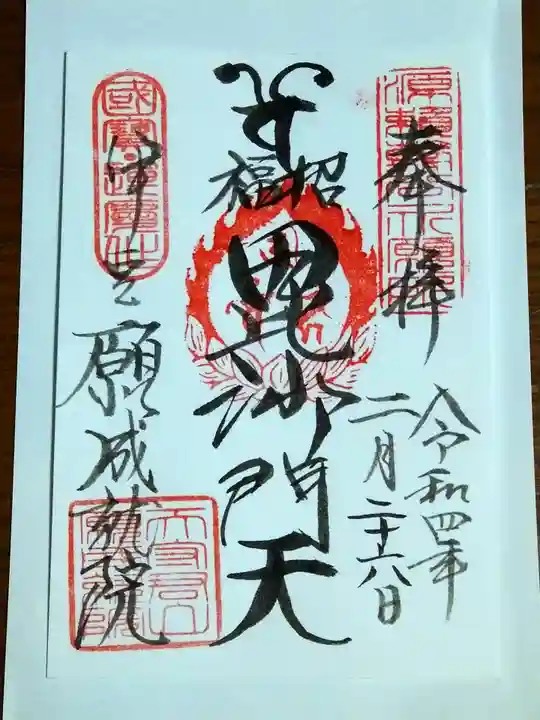 奉拝
令和四年
二月二十六日
招福
毘沙門天
伊豆
願成就院